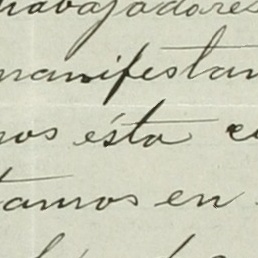 trabajadores
manifestan
nos ésta
tamos en